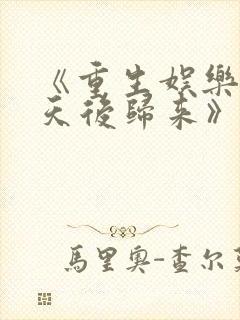 《重生娛樂
天後歸來》
馬里奧-查尔